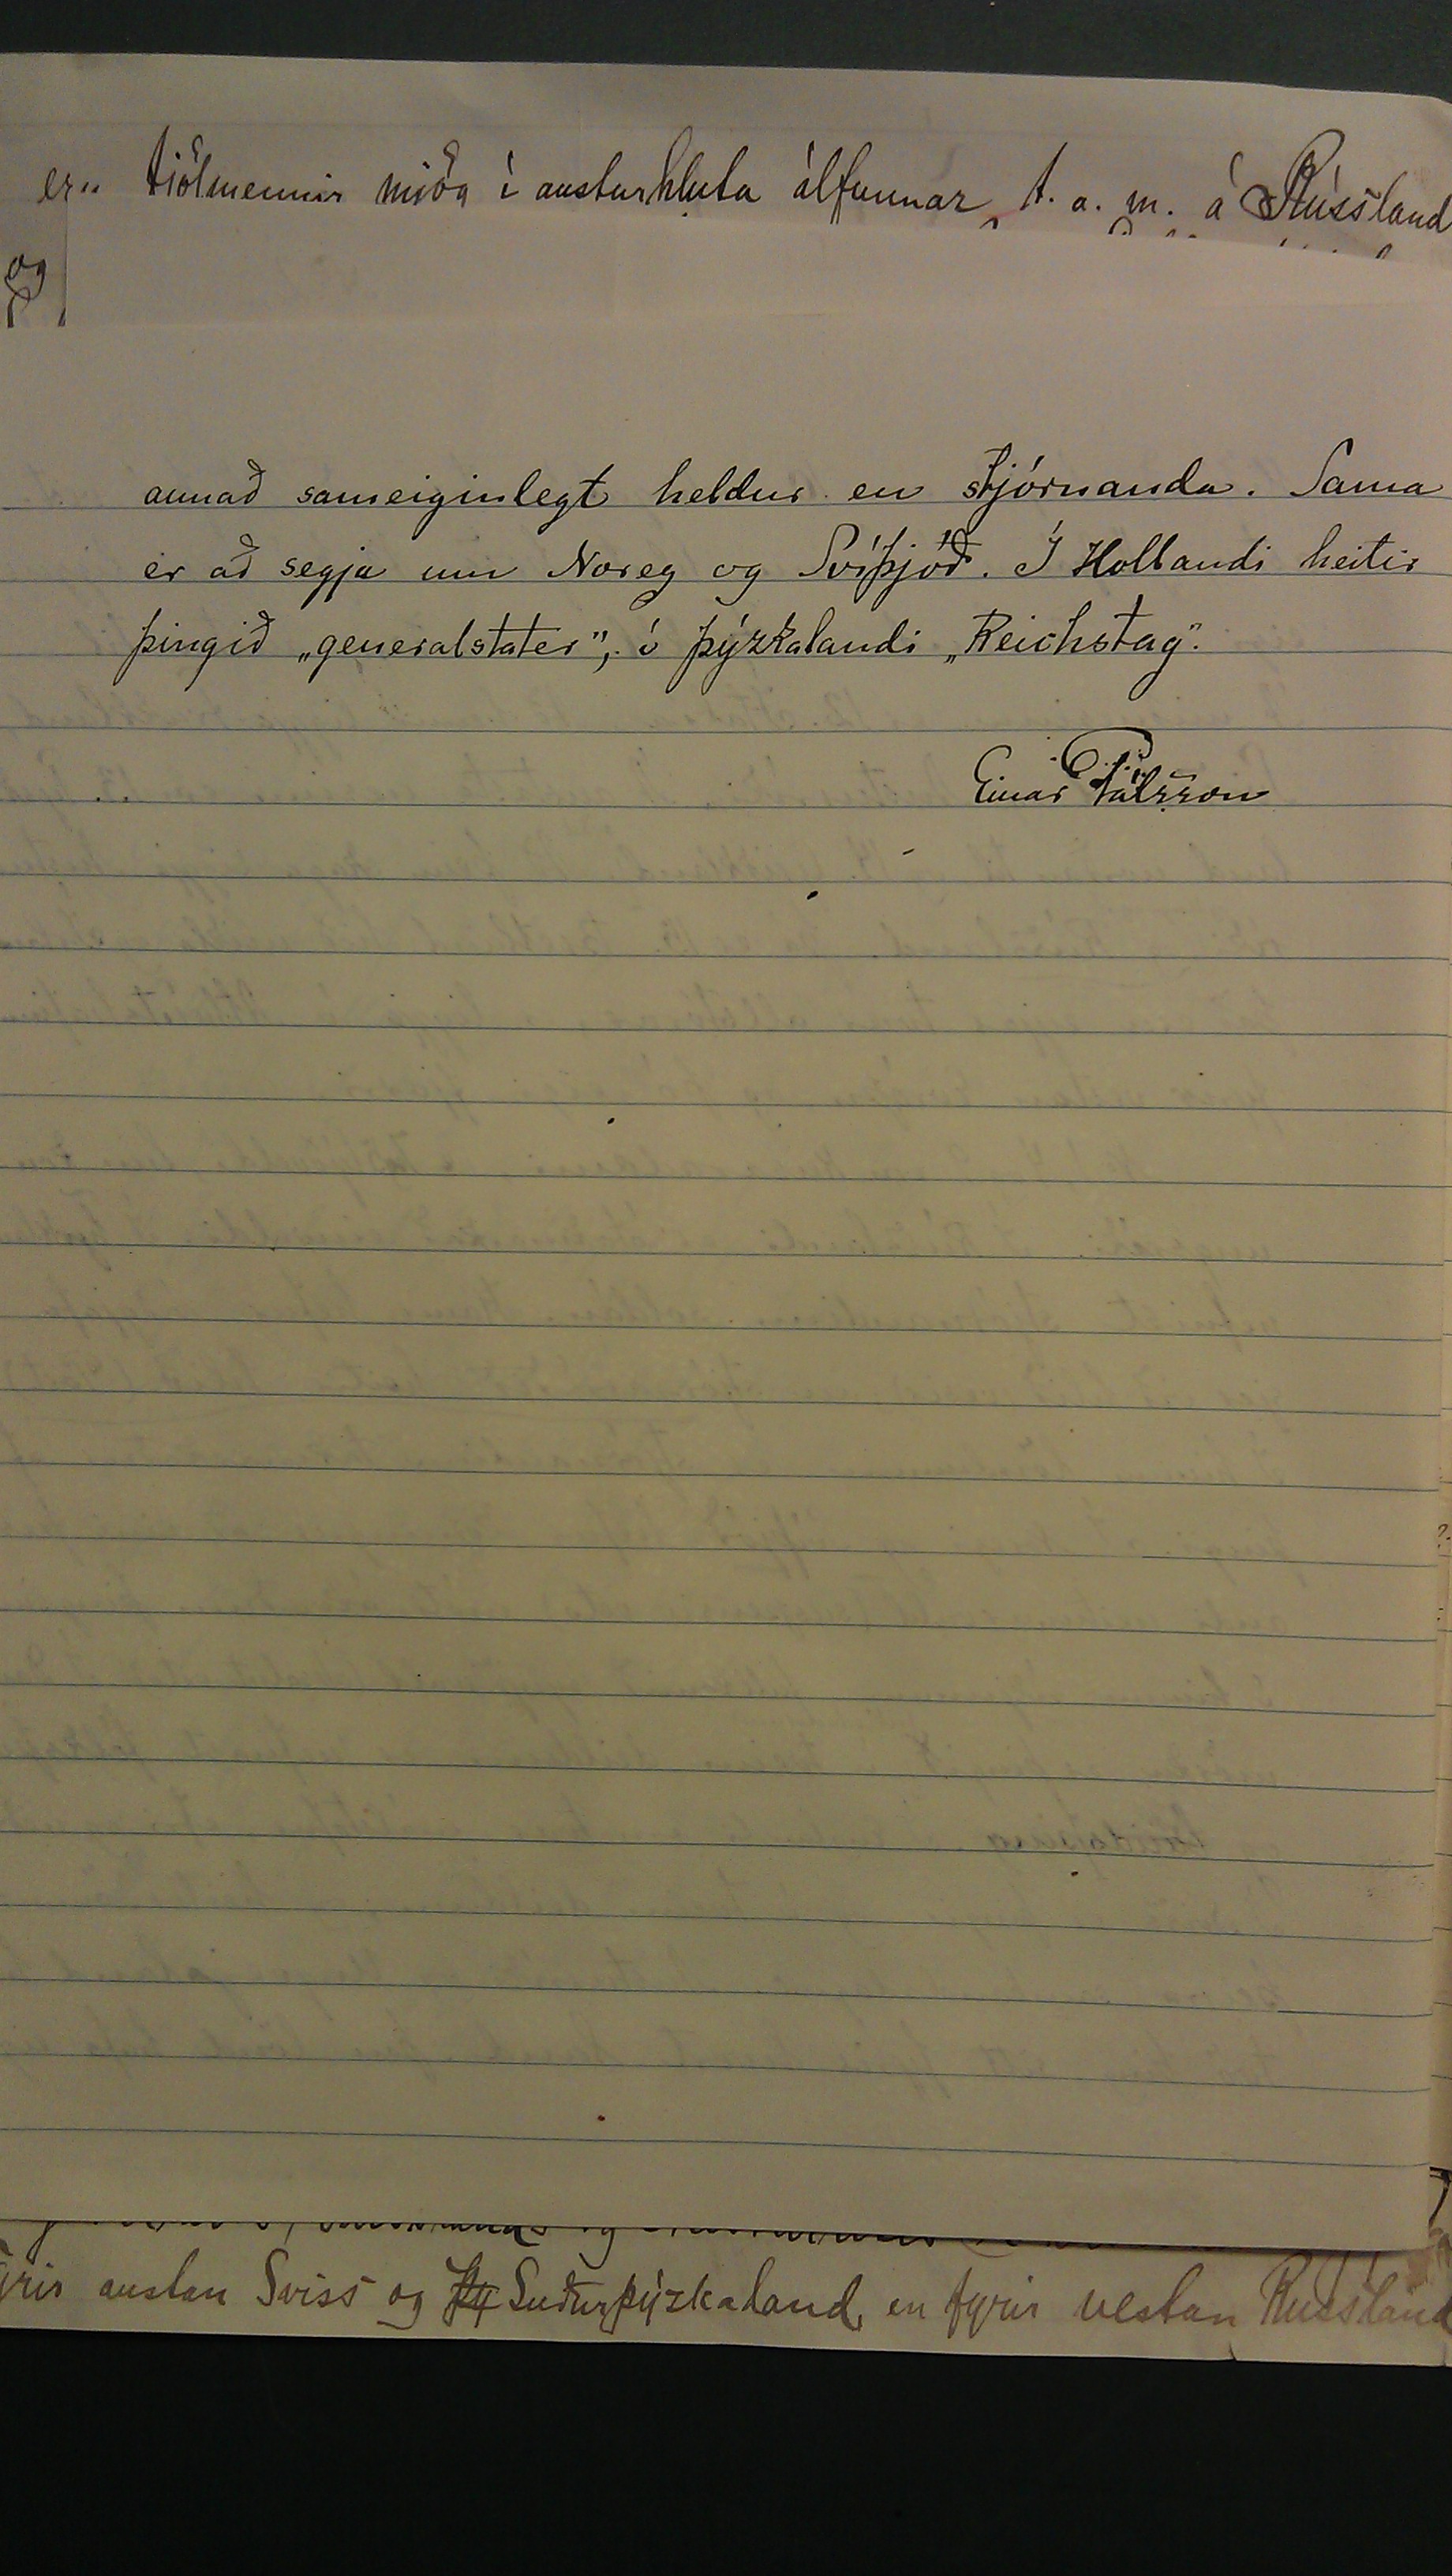 eru fjölmennir mjög í austurhluta álfunnar, t. a. m. á Rússland
og
annað sameiginlegt heldur en stjórnanda. Sama
er að segja um Noreg og Svíþjóð. Í Hollandi heitir
þingið „generalstater", á þýzkalandi „Reichstag".
Einar Pálsson
yrir austan Sviss og Suðurþýzkaland, en fyrir vestan Rússland